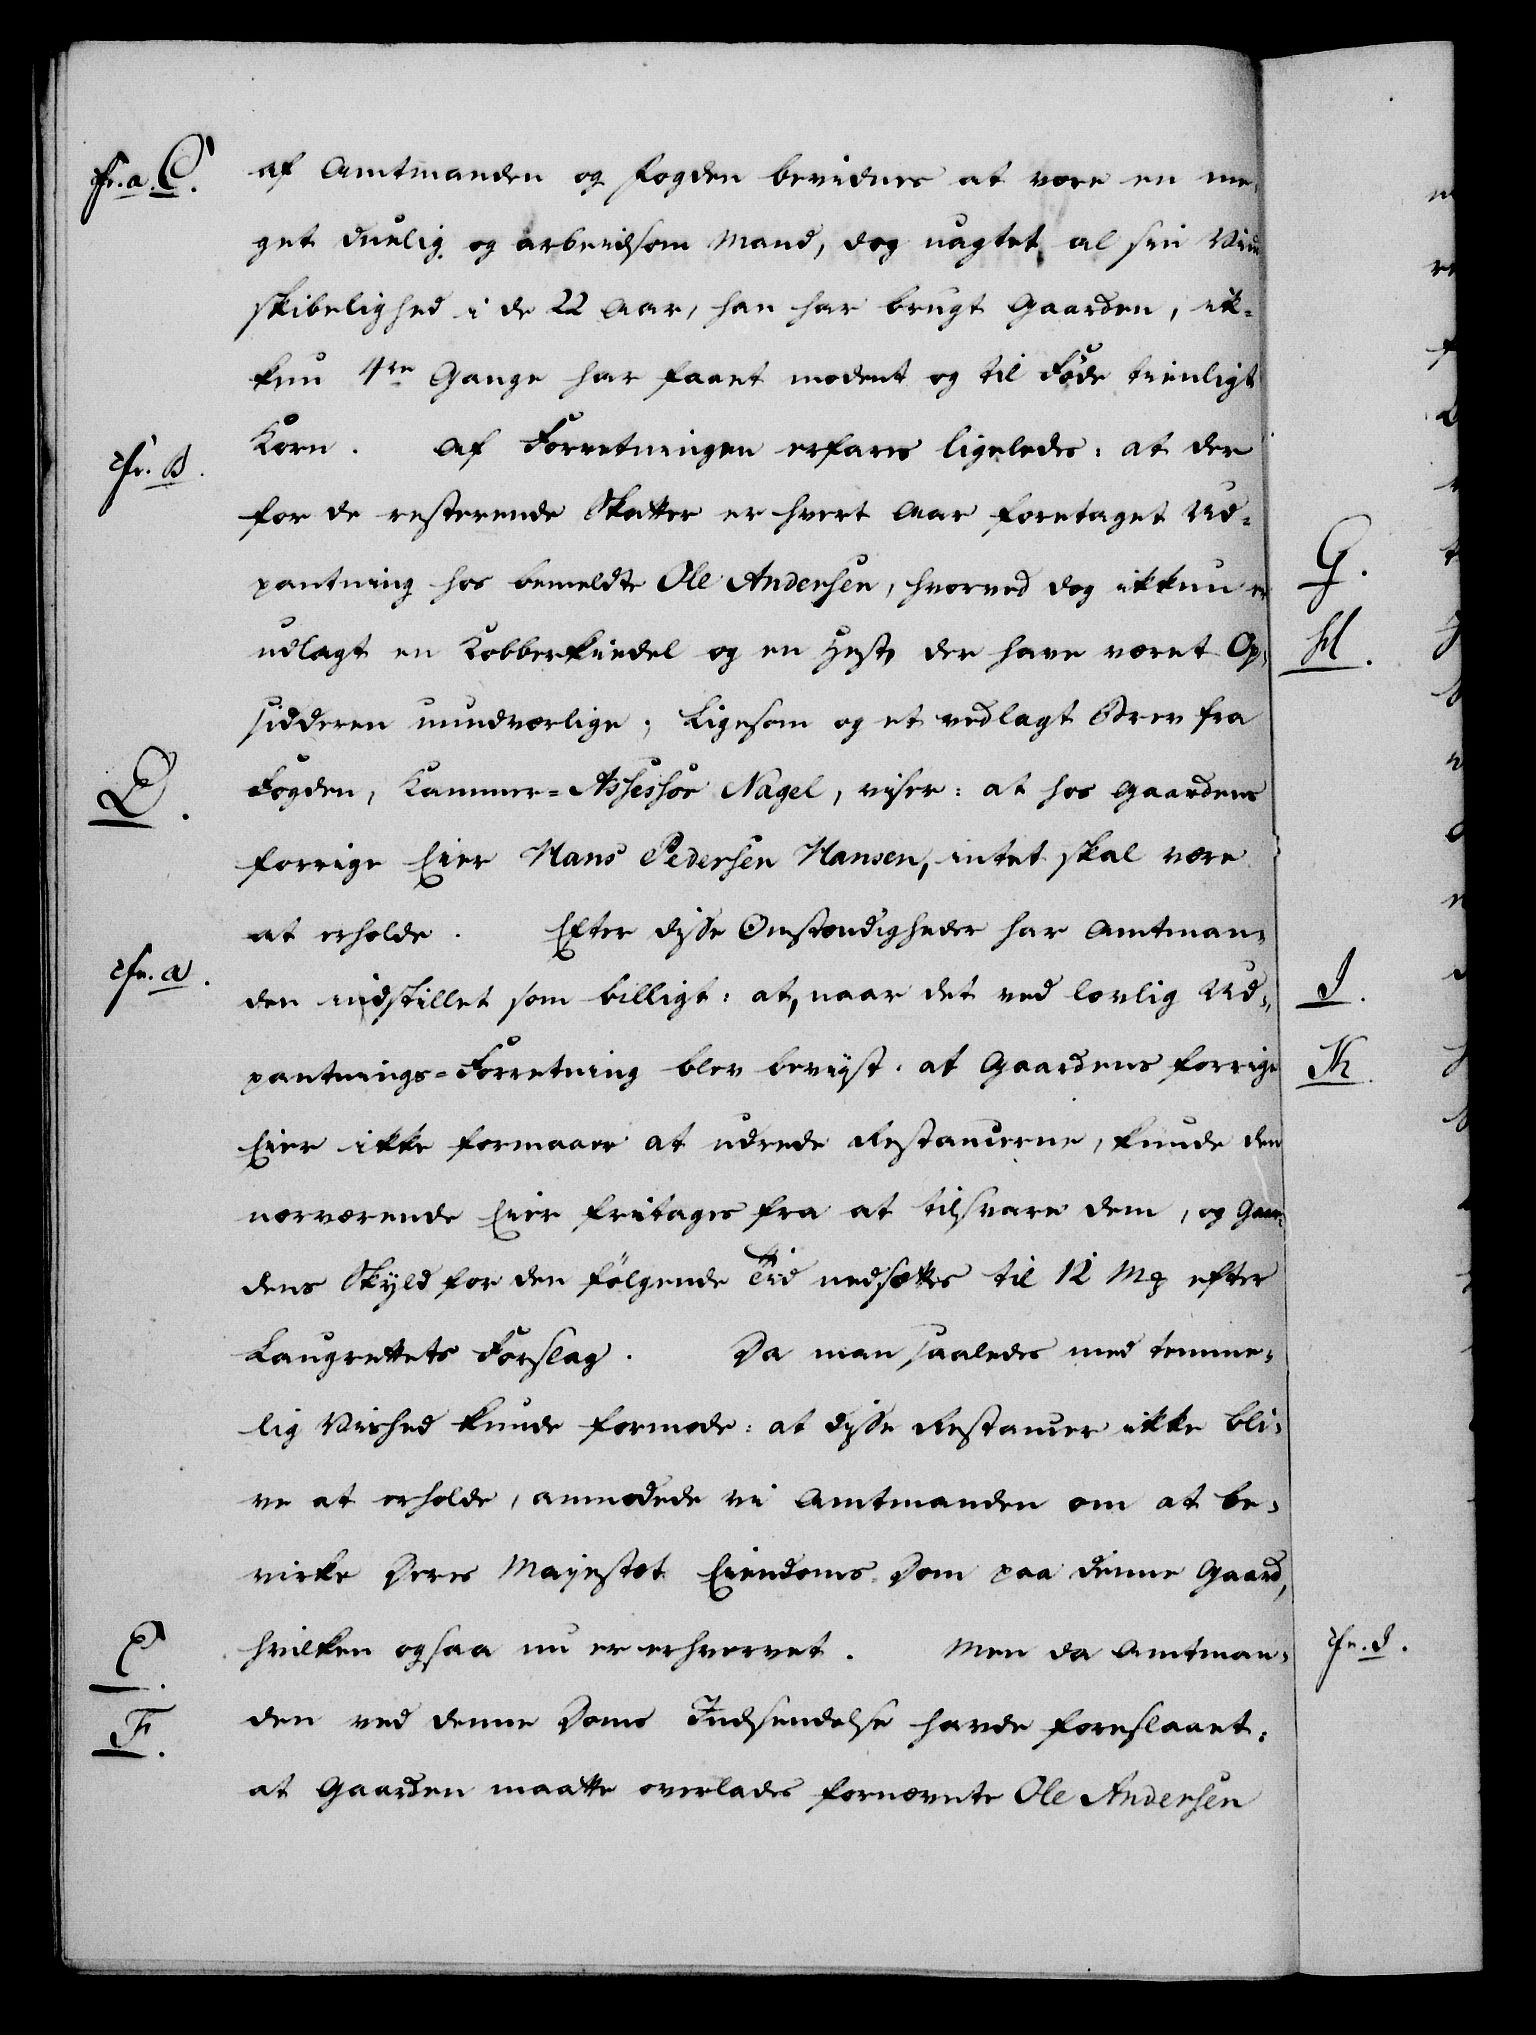 cfr. a. C. af Amtmanden og Fogden bevidnes at være en me-
get duelig og arbeidsom Mand, dog uagtet al sin Vind
skibelighed i de 22 Aar, han har brugt Gaarden, ik-
kun 4re Gange har faaet modent og til Føde tienligt
Korn. Af Forretningen erfares ligeledes: at der
cfr. B.
for de resterende Skatter er hvert Aar foretaget Ud-
pantning hos bemeldte Ole Andersen, hvorved dog ikkun er
G.
udlagt en Kobberkiedel og en Hest, der have været Op-
H.
sidderen uundværlige; Ligesom og et vedlagt Brev fra
Fogden, Kammer-Assessor Nagel, viser: at hos Gaardens
D.
forrige Eier Hans Pedersen Hansen, intet skal være
at erholde. Efter disse Omstændigheder har Amtman-
cfr. a.
den indstillet som billigt: at, naar det ved lovlig Ud-
I.
pantnings-Forretning blev beviist, at Gaardens forrige
K.
Eier ikke formaaer at udrede Restancerne, kunde den
nærværende Eier fritages fra at tilsvare dem, og Gaar-
dens Skyld for den følgende Tid nedsættes til 12 Mg efter
Laugrettets Forslag. Da man saaledes med temme-
lig Vished kunde formode: at disse Restancer ikke bli-
ve at erholde, anmodede vi Amtmanden om at be-
virke Deres Majestæt Eiendoms-Dom paa denne Gaard,
E.
hvilken ogsaa nu er erhvervet. Men da Amtman-
cfr. I.
F.
den ved denne Doms Indsendelse havde foreslaaet:
at Gaarden maatte overlades fornævnte Ole Andersen